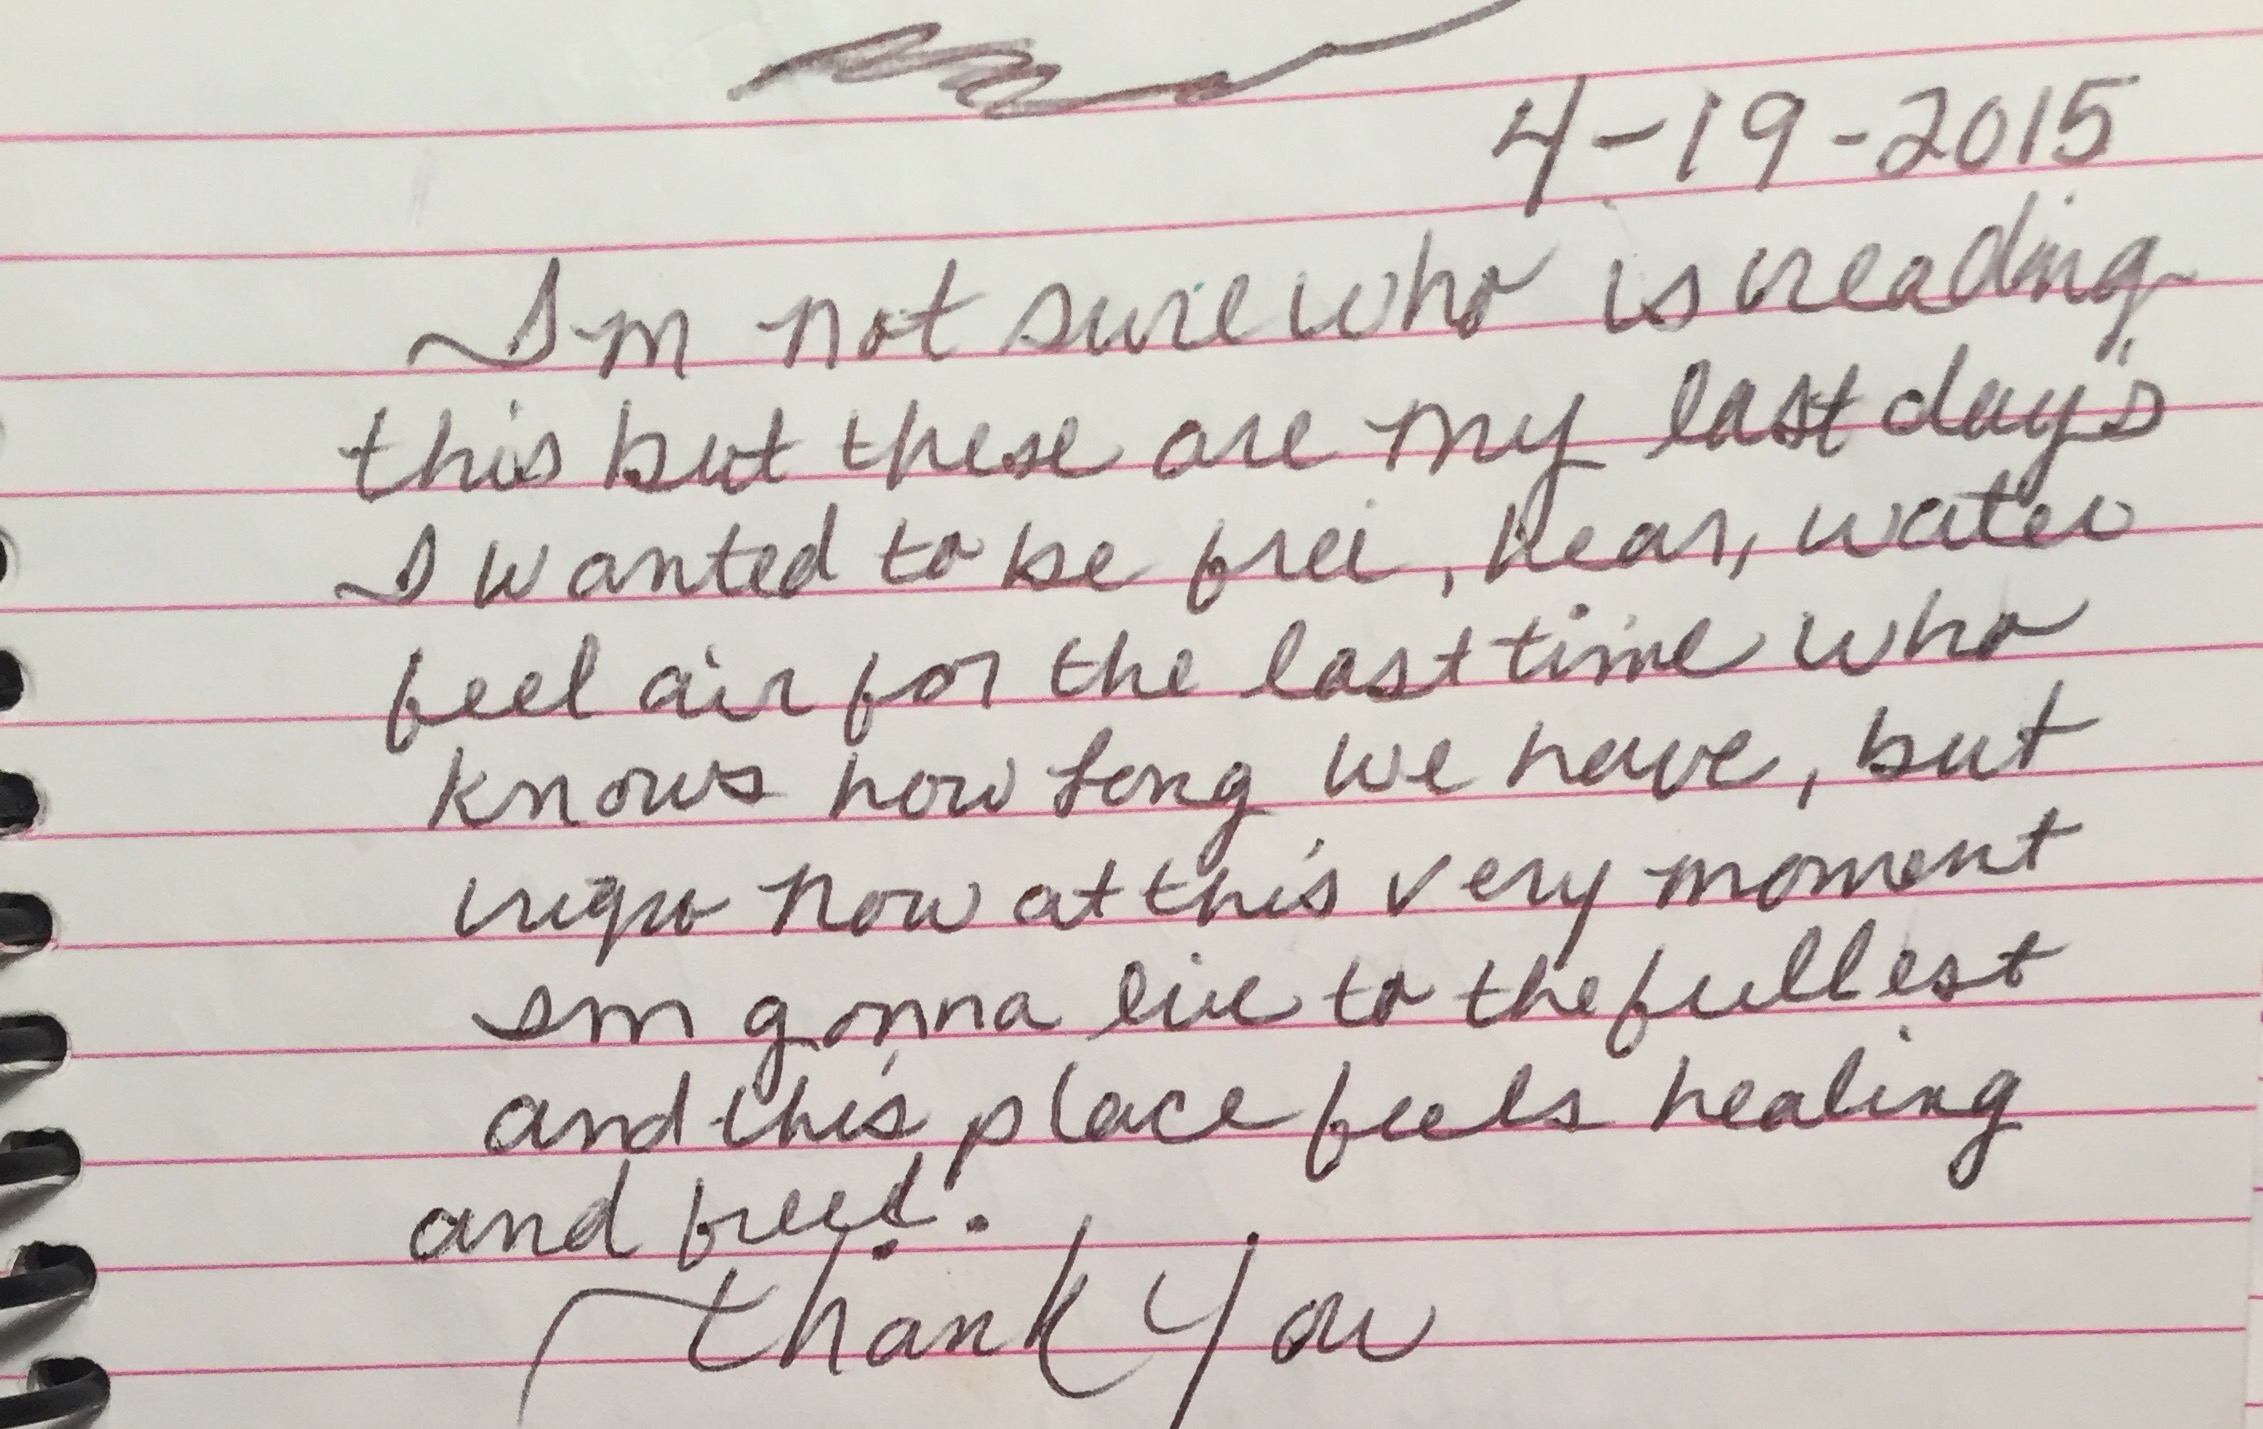 4-19-2015
I'm not sure who is reading
this but these are my last day's
I wanted to be free, hear, water
feel air for the last time who
knows how long we have, but
now at this very moment
Im gonna live to the fullest
and this place feels healing
and free!.
Thank You